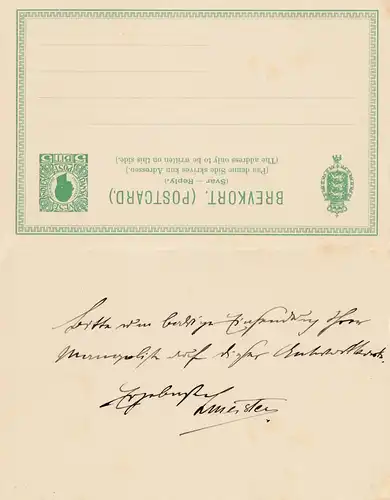 BREVKORT. (POSTCARD.)
(Svar — Reply.)
(Paa denne Side skrives kun Adressen.)
(The address only to be written on this side.)
5 BIT 5
Bitte um baldige Einsendung Ihrer
Mangelliste auf dieser Antwortkarte.
Ergebenst